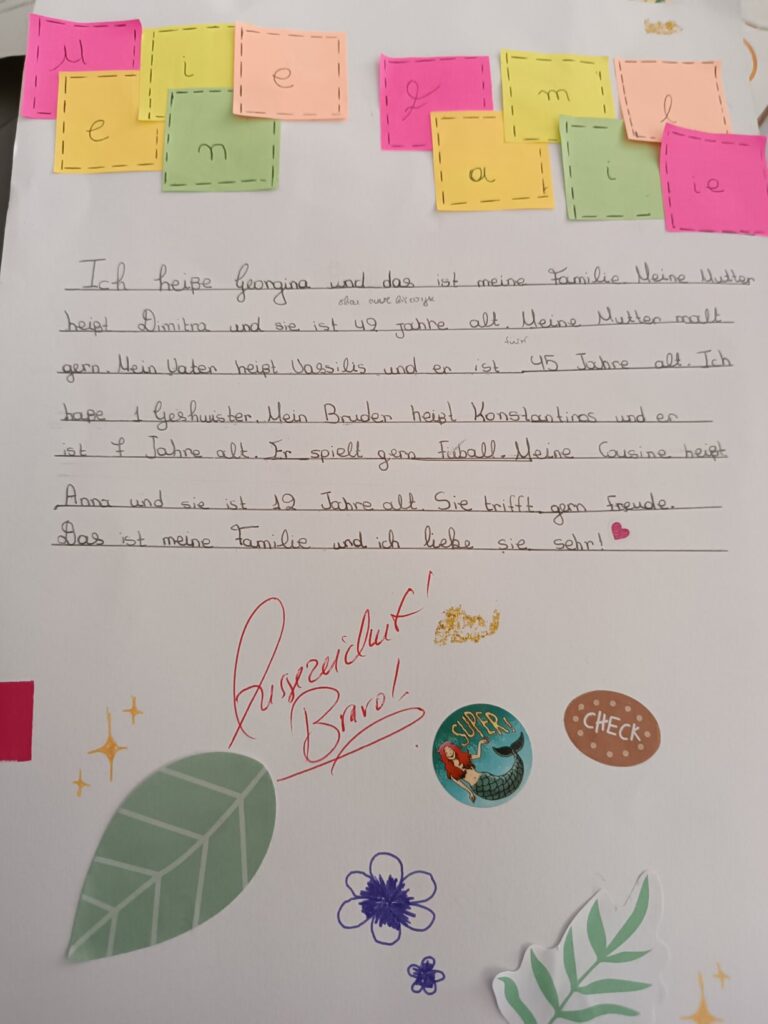 Meine Familie
Ich heiße Georgina und das ist meine Familie. Meine Mutter
heißt Dimitra und sie ist 42 jahre alt. Meine Mutter malt
gern. Mein Vater heißt Vassilis und er ist 45 Jahre alt. Ich
habe 1 Geshwister. Mein Bruder heißt Konstantinos und er
ist 7 Jahre alt. Er spielt gern Fußball. Meine Cousine heißt
Anna und sie ist 12 Jahre alt. Sie trifft gern Freude.
Das ist meine Familie und ich liebe sie sehr!
Ausgezeichnet!
Bravo!
SUPER!
CHECK